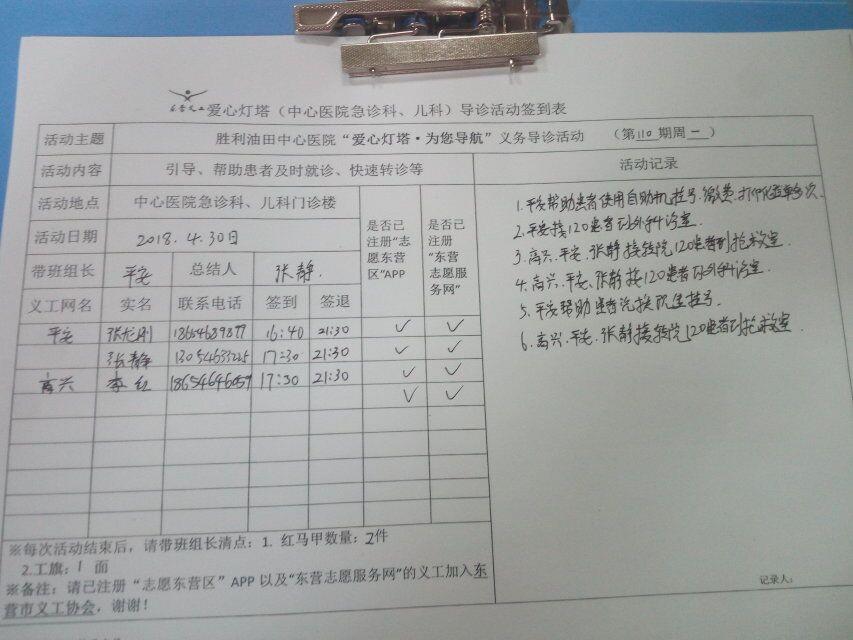 东营义工 爱心灯塔（中心医院急诊科、儿科）导诊活动签到表
活动主题 胜利油田中心医院“爱心灯塔·为您导航”义务导诊活动 （第110期周一）
活动内容 引导、帮助患者及时就诊、快速转诊等
活动地点 中心医院急诊科、儿科门诊楼
活动日期 2018.4.30日
带班组长 平安 总结人 张静
义工网名 实名 联系电话 签到 签退
是否已注册“志愿东营区”APP
是否已注册“东营志愿服务网”
平安 张龙刚 18654689877 16:40 21:30 ✓ ✓
张静 13054633225 17:30 21:30 ✓ ✓
高兴 李红 18654646059 17:30 21:30 ✓ ✓
✓ ✓
活动记录
1.平安帮助患者使用自助机挂号.缴费.打印化验单多次.
2.平安接120患者到外科诊室.
3.高兴.平安.张静接转院120患者到抢救室.
4.高兴.平安.张静接120患者到外科诊室.
5.平安帮助患者兑换院里挂号.
6.高兴.平安.张静接转院120患者到抢救室.
※每次活动结束后，请带班组长清点：1. 红马甲数量：2件
2.工旗：1 面
※备注：请已注册“志愿东营区”APP以及“东营志愿服务网”的义工加入东
营市义工协会，谢谢！
记录人：